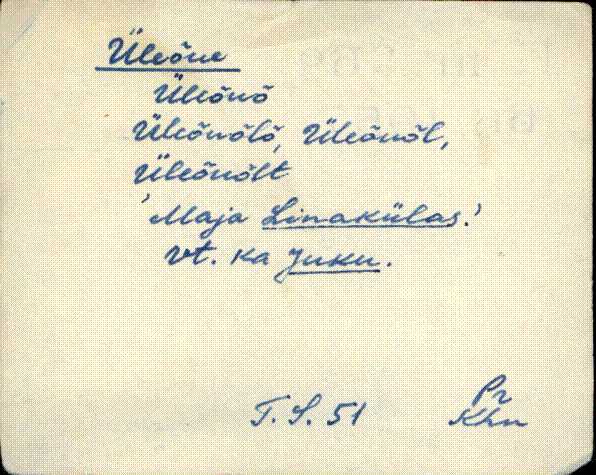 Üleõue
Üleõuõ
Üleõuõlõ, Üleõuõl,
Üleõuõlt
'Maja Linakülas.'
vt. ka Juku.
Pr
T. S. 51 Khn